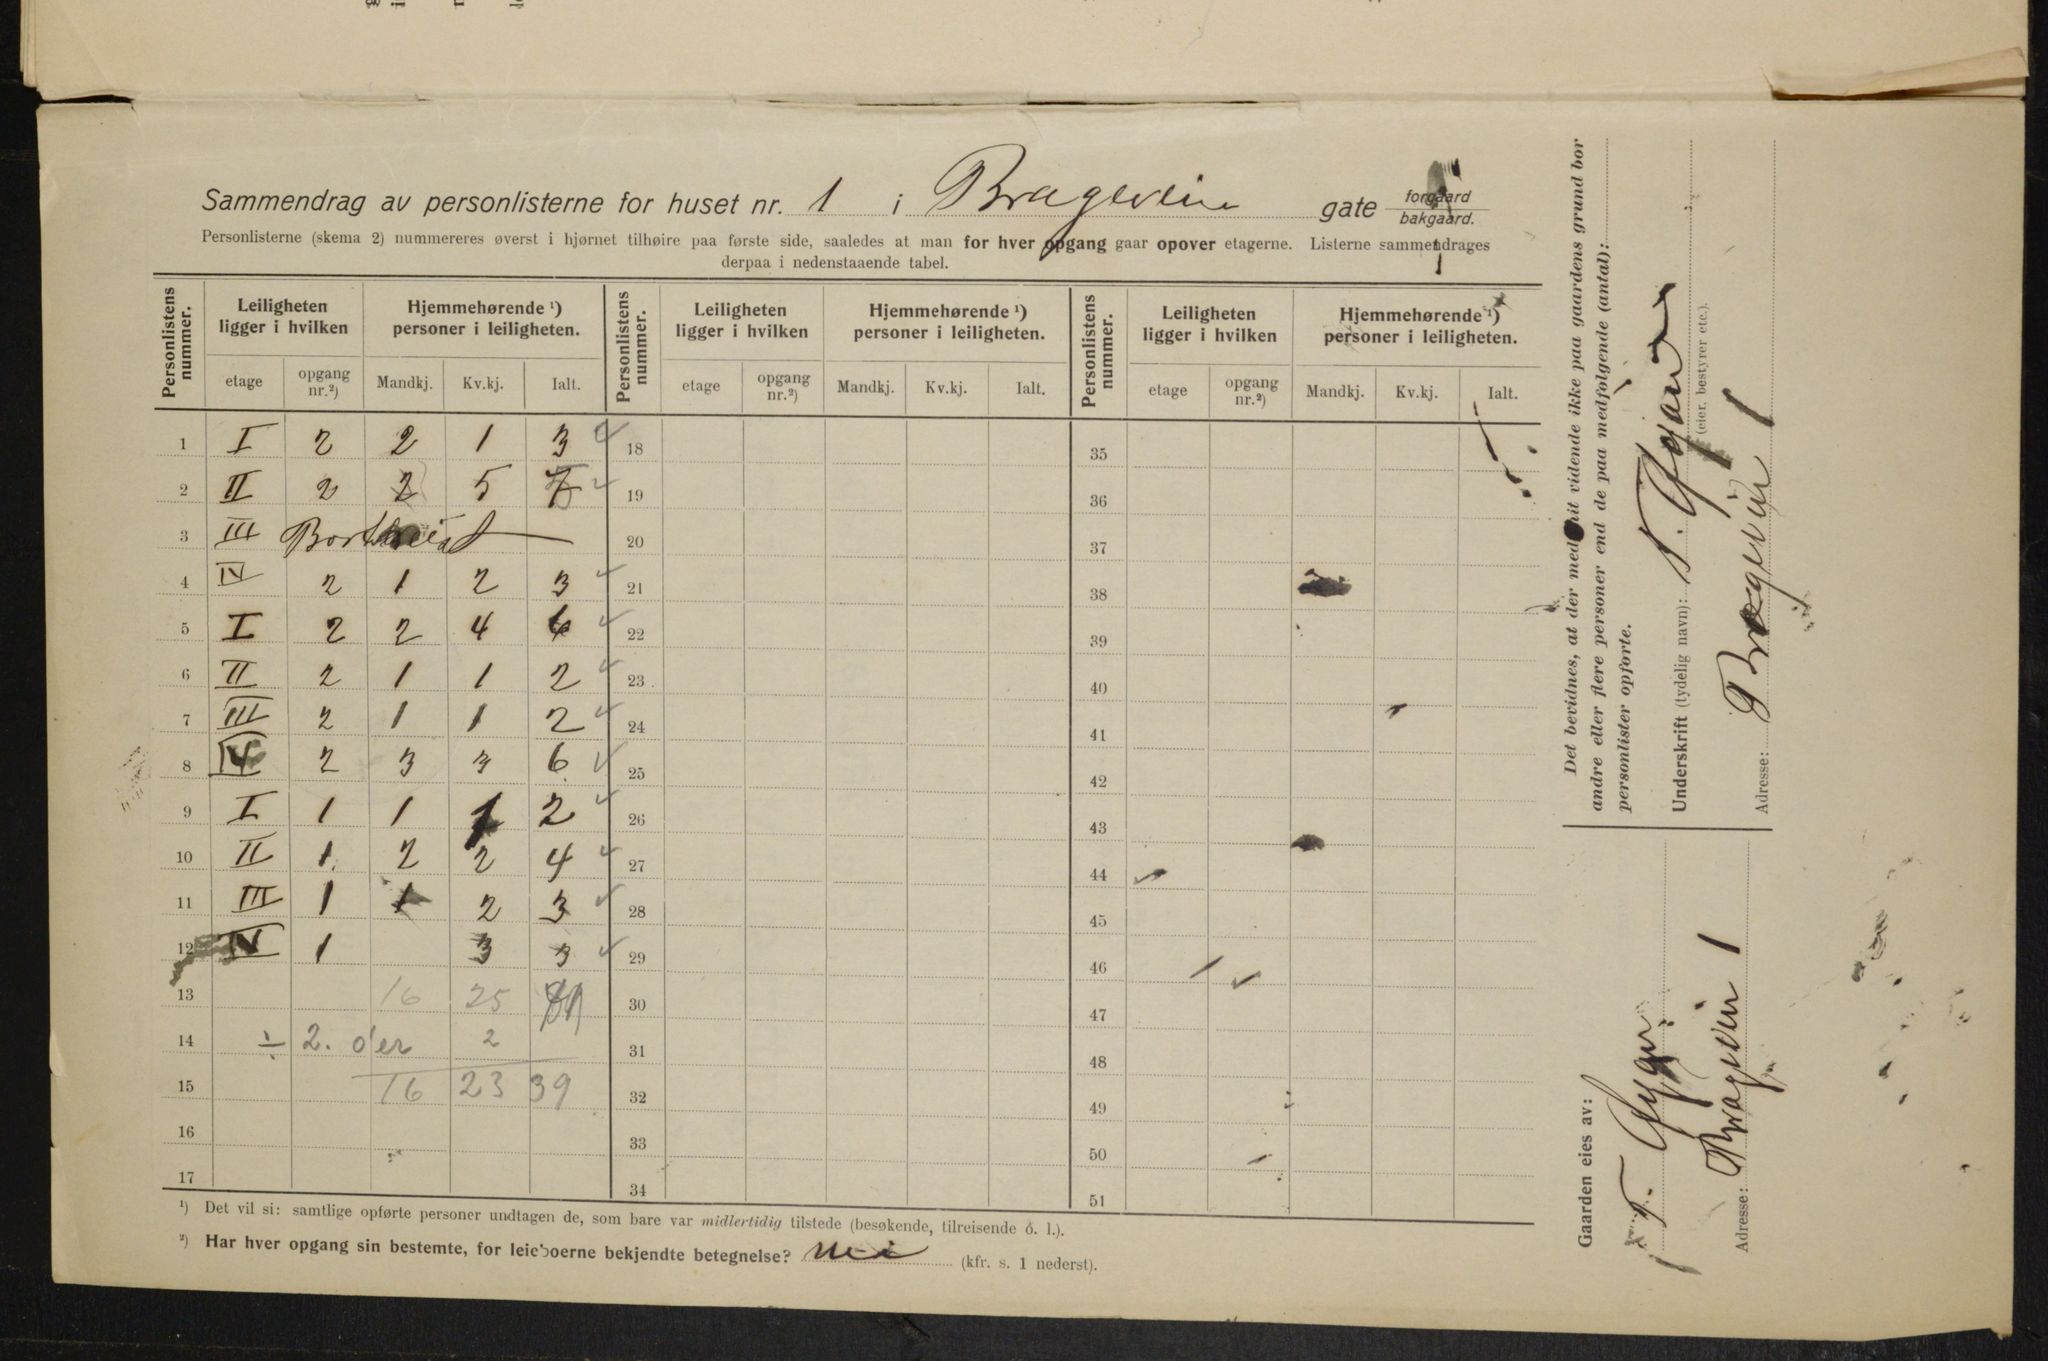 Sammendrag av personlisterne for huset nr. 1 i Brageveien gate forgaard bakgaard.
Personlisterne (skema 2) nummereres øverst i hjørnet tilhøire paa første side, saaledes at man for hver opgang gaar opover etagerne. Listerne sammendrages
derpaa i nedenstaaende tabel.
Personlistens nummer. Leiligheten ligger i hvilken Hjemmehørende ¹) personer i leiligheten. Personlistens nummer. Leiligheten ligger i hvilken Hjemmehørende ¹) personer i leiligheten. Personlistens nummer. Leiligheten ligger i hvilken Hjemmehørende ¹) personer i leiligheten.
etage opgang nr.²) Mandkj. Kv.kj. Ialt. etage opgang nr.²) Mandkj. Kv.kj. Ialt. etage opgang nr.²) Mandkj. Kv.kj. Ialt.
1 I 2 2 1 3 18 35
2 II 2 2 5 7 19 36
3 III 20 37
4 IV 2 1 2 3 21 38
5 I 2 2 4 6 22 39
6 II 2 1 1 2 23 40
7 III 2 1 1 2 24 41
8 IV 2 3 3 6 25 42
9 I 1 1 1 2 26 43
10 II 1 2 2 4 27 44
11 III 1 1 2 3 28 45
12 IV 1 3 3 29 46
13 16 25 30 47
14 ÷ 2. 2 31 48
15 16 23 39 32 49
16 33 50
17 34 51
¹) Det vil si: samtlige opførte personer undtagen de, som bare var midlertidig tilstede (besøkende, tilreisende o. l.).
²) Har hver opgang sin bestemte, for leieboerne bekjendte betegnelse? Nei (kfr. s. 1 nederst).
Det bevidnes, at der med mit vidende ikke paa gaardens grund bor
andre eller flere personer end de paa medfølgende (antal):
personlister opførte.
Underskrift (tydelig navn):
(eier, bestyrer etc.).
Adresse: Brageveien 1
Gaarden eies av:
Adresse: Brageveien 1